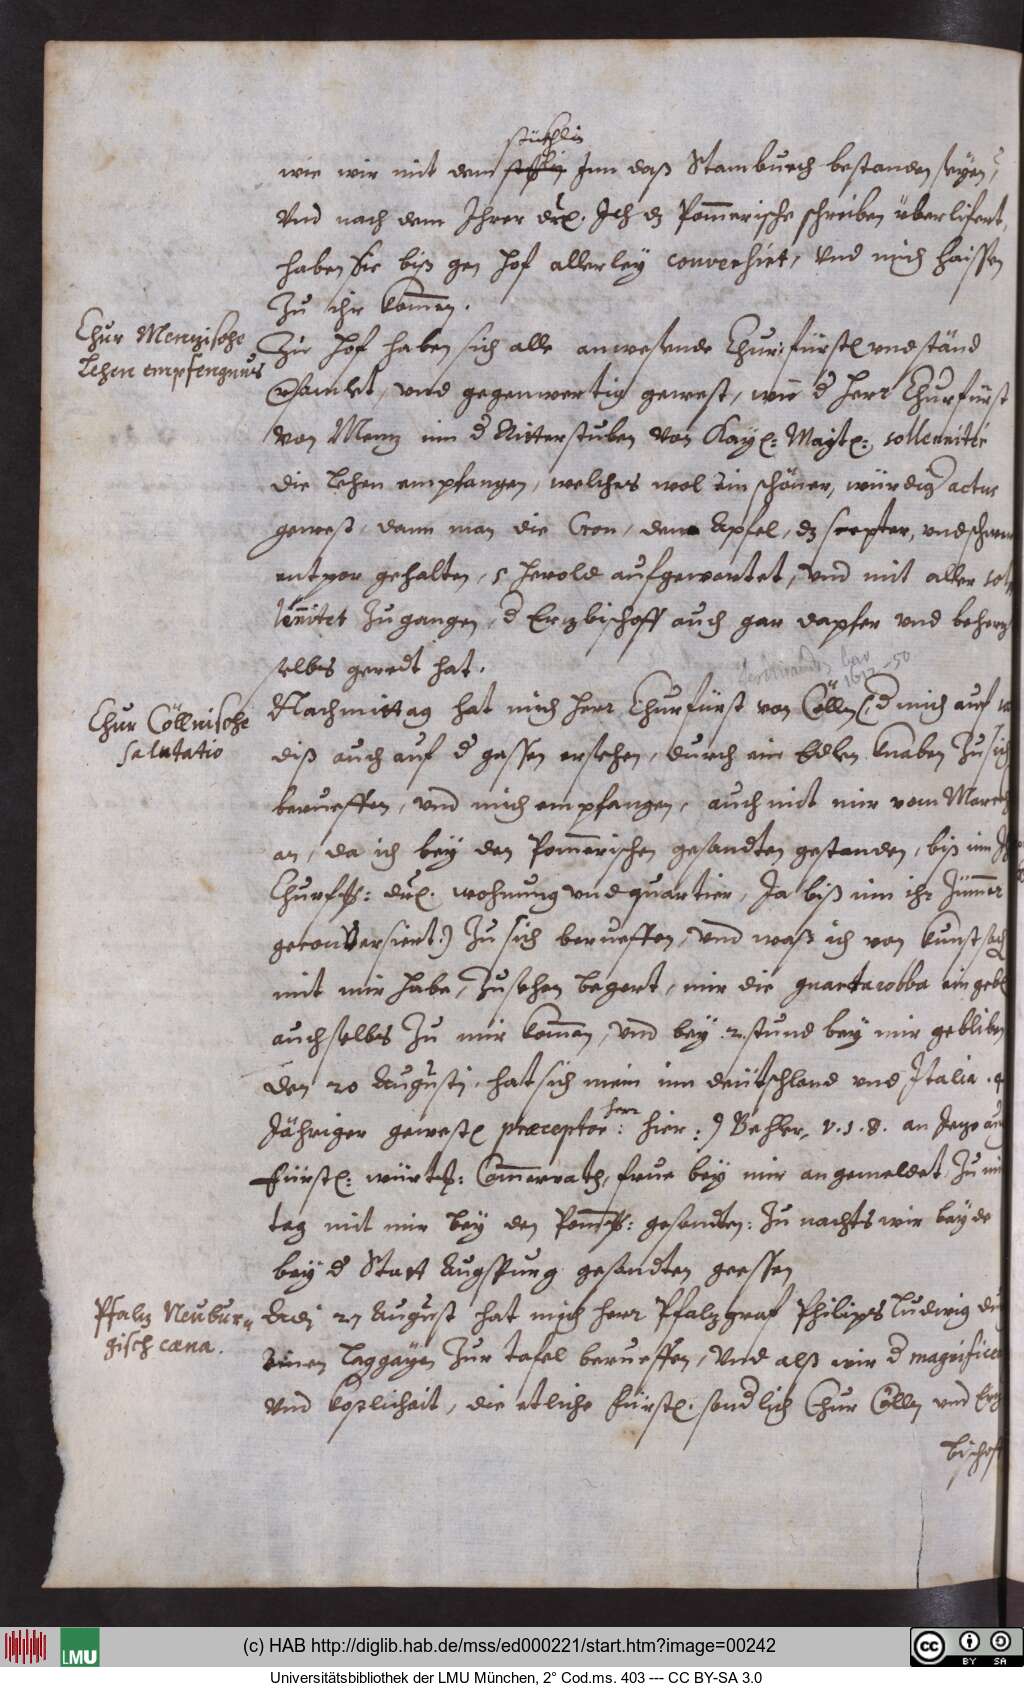 stüehlin
wie wir mit dem Inn daß Stambuech bestanden seyen,
Vnd nach dem Ihrer drl. Ich dz Pommerische schreiben überlifert,
haben Sie biß gen hof allerley conversiert, Vnd mich haissen
Zu ihr kommen.
Chur Menzische
Lehen empfengnus
Zu hof haben sich alle anwesende Chur: fürstl vnd ständ
versamlet, vnd gegenwertig gewest, wie d herr Churfürst
von Menz inn d Ritterstuben von Kayl: Maytl: sollenniter
die Lehen empfangen, welches wol ein schöner, würdig actus
geweß, dann man die Cron, den Apfel, dz scepter, vnd schwert
entpor gehalten, 5 herold aufgewartet, Vnd mit aller sol-
lennitet Zugangen, d Erzbischoff auch gar dapfer vnd beherzt
selbs geredt hat.
Ferdinandus bav
1612-50
Chur Cöllnische
salutatio
Nachmittag hat mich herr Churfürst von Cöllen (:d mich auf
diß auch auf d gassen ersehen, durch ein Edlen knaben Zu sich
berueffen, vnd mich empfangen, auch mit mir vom Marckh
an, da ich bey den Pommerischen gesandten gestanden, biß inn
Churfs: drl. wohnung vnd quartier, Ja biß inn ihr Zimmer
geconversiert:) Zu sich berueffen, Vnd waß ich von kunst sach
mit mir habe, Zusehen begert, mir die guartarobba eingeb
auch selbs Zu mir kommen, Vnd bey 2 stund bey mir gebliben
den 20 Augusti, hat sich mein inn deütschland vnd Italia
Jähriger gewestl præceptor: herr hier:9 Beheler, V.I.D. an Jezo auch
Fürstl: würtß: Cammerrath, frue bey mir angemeldet, Zu mit
tag mit mir bey den Pommß: gesandten: Zu nachts wir beyde
bey d Statt Augspurg gesandten geessen
Pfalz Neubur-
gisch cæna.
Adj 21 August hat mich herr Pfalzgraf Philips Ludwig du
einen laggayen Zur tafel berueffen, Vnd alß wir d magnifice
vnd köstlicheit, die etliche fürstl. sonderlich Chur Cölln vnd Erz
bischoff
(c) HAB http://diglib.hab.de/mss/ed000221/start.htm?image=00242
LMU
cc BY SA
Universitätsbibliothek der LMU München, 2° Cod.ms. 403 --- CC BY-SA 3.0